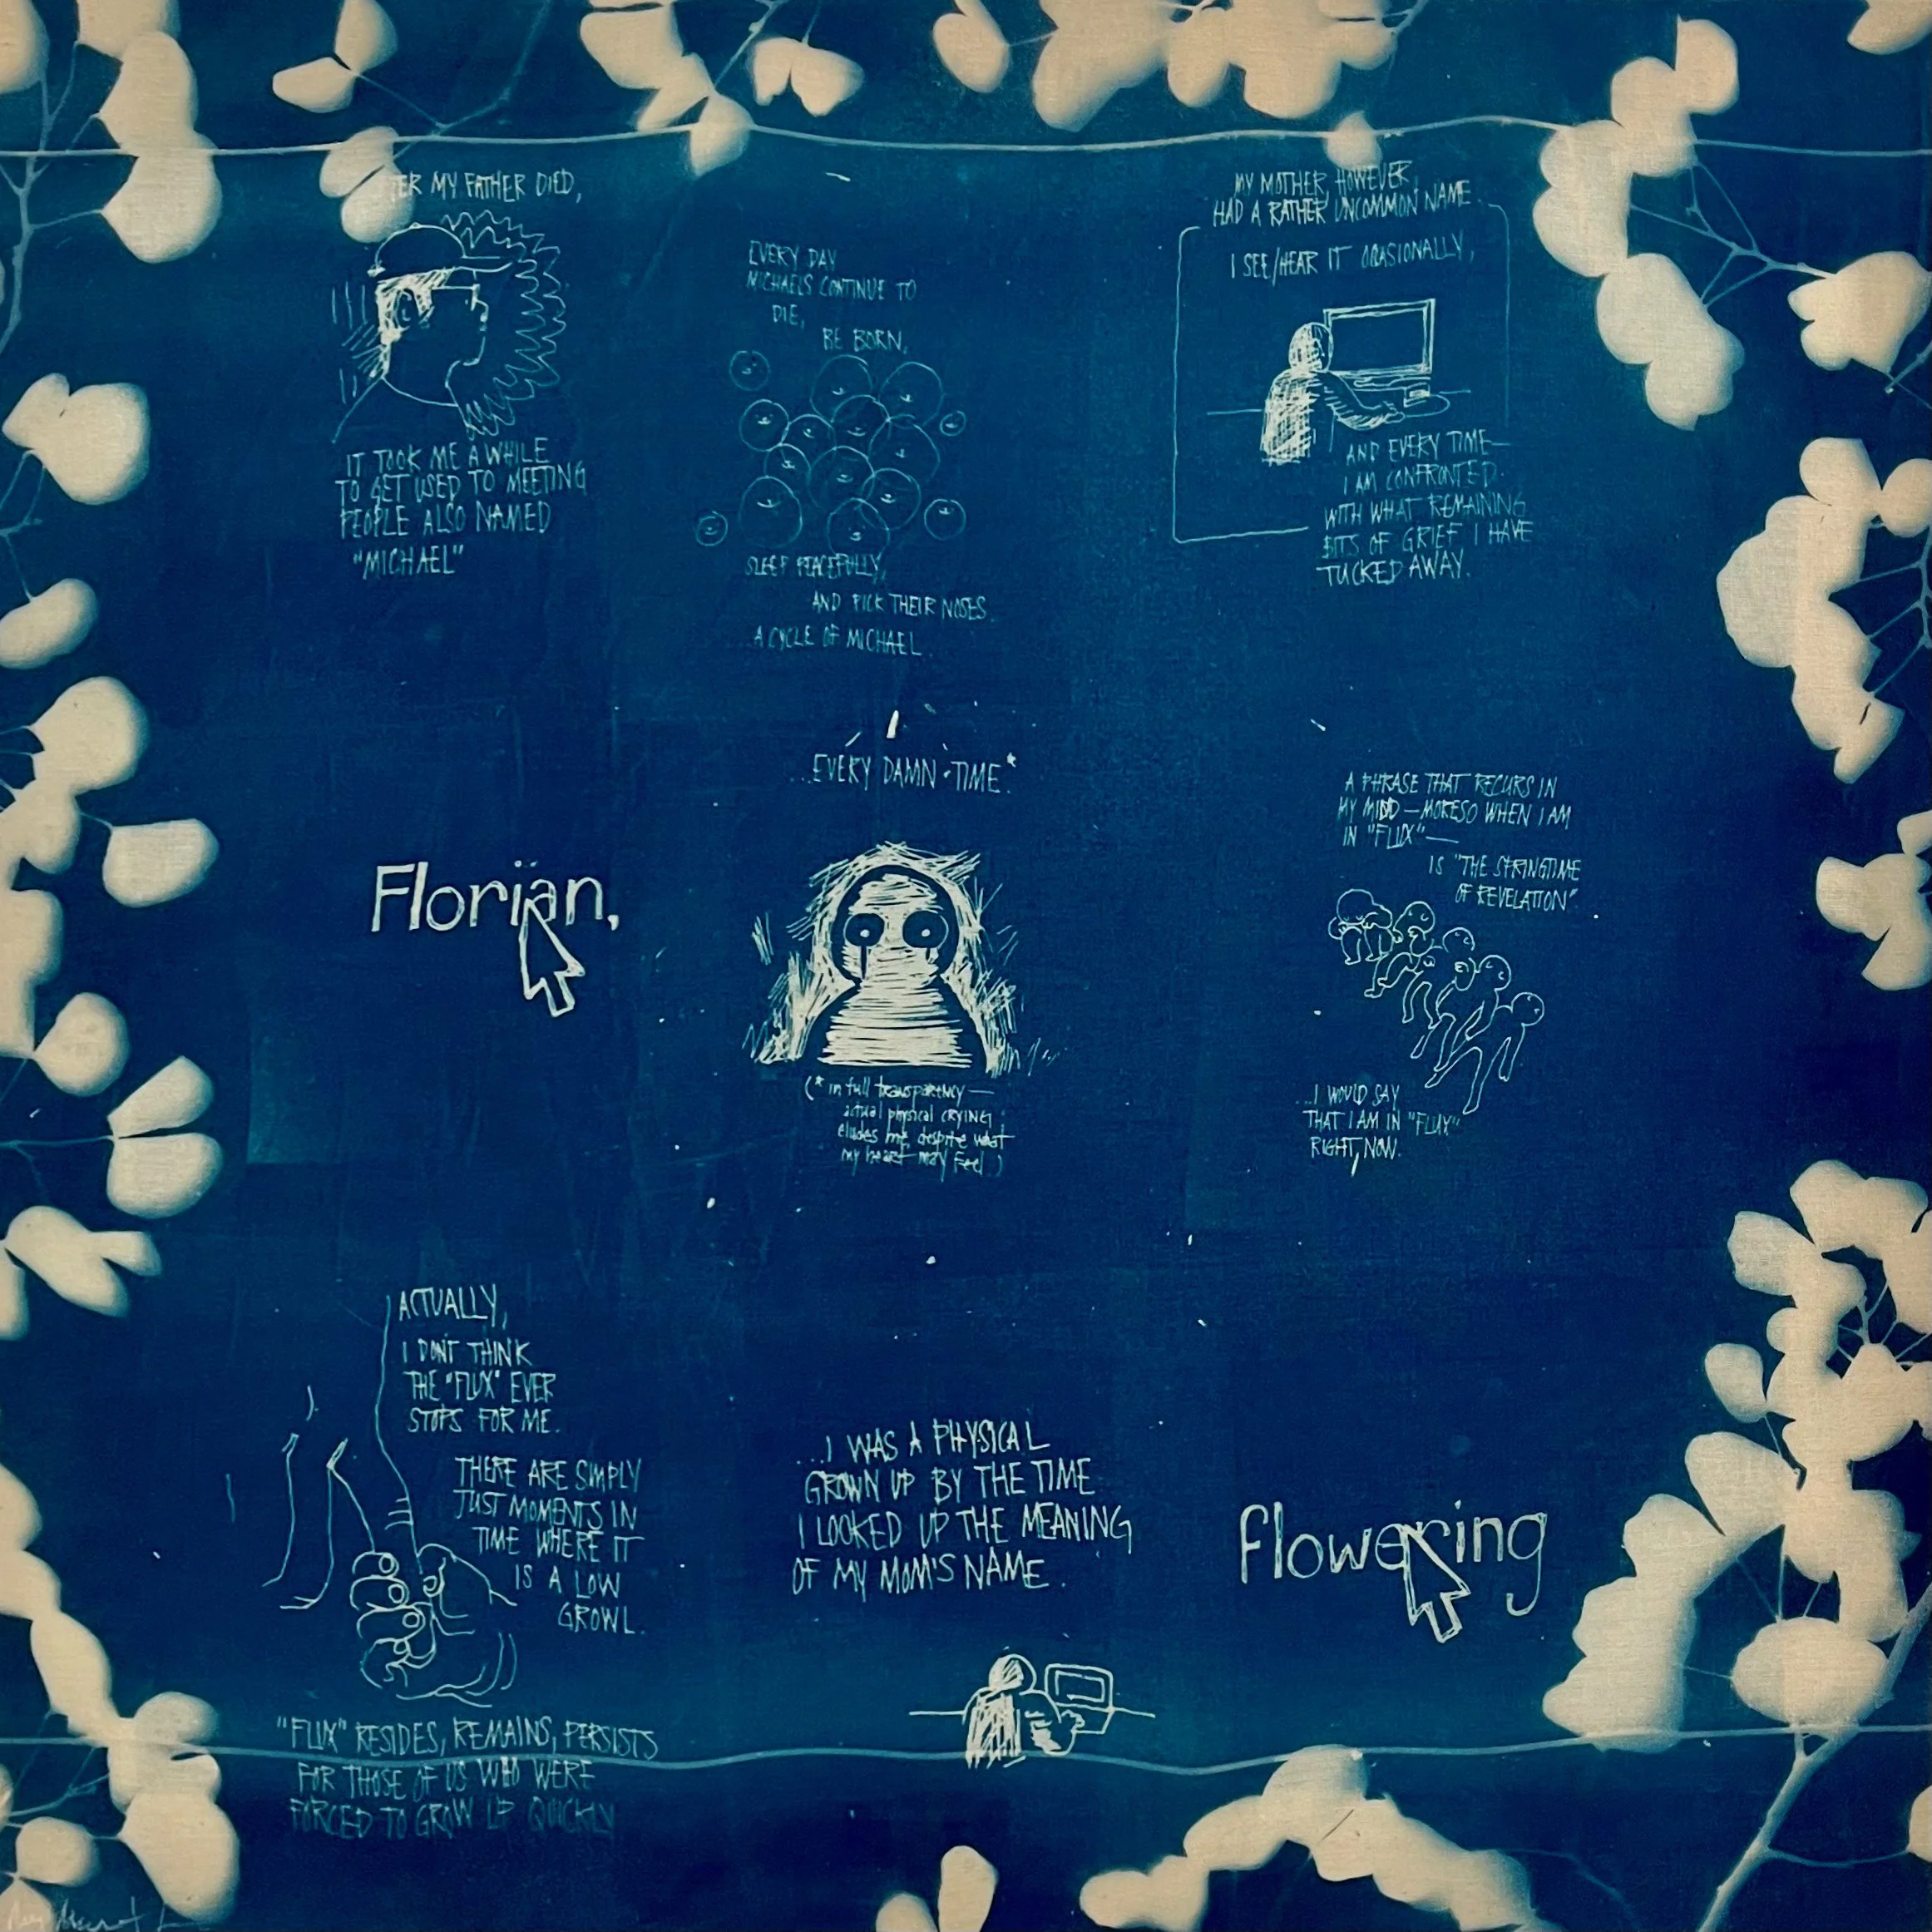 ER MY FATHER DIED,
IT TOOK ME A WHILE
TO GET USED TO MEETING
PEOPLE ALSO NAMED
"MICHAEL"
EVERY DAY
MICHAELS CONTINUE TO
DIE,
BE BORN,
SLEEP PEACEFULLY,
AND PICK THEIR NOSES.
A CYCLE OF MICHAEL.
MY MOTHER, HOWEVER,
HAD A RATHER UNCOMMON NAME.
I SEE/HEAR IT OCASIONALLY,
AND EVERY TIME—
I AM CONFRONTED
WITH WHAT REMAINING
BITS OF GRIEF I HAVE
TUCKED AWAY.
Florian,
...EVERY DAMN TIME*
(* in full transparency—
actual physical crying
eludes me, despite what
my heart may feel)
A PHRASE THAT RECURS IN
MY MIDD — MORESO WHEN I AM
IN "FLUX"—
IS "THE SPRINGTIME
OF REVELATION"
...I WOULD SAY
THAT I AM IN "FLUX"
RIGHT, NOW.
ACTUALLY,
I DON'T THINK
THE "FLUX" EVER
STOPS FOR ME.
THERE ARE SIMPLY
JUST MOMENTS IN
TIME WHERE IT
IS A LOW
GROWL.
"FLUX" RESIDES, REMAINS, PERSISTS
FOR THOSE OF US WHO WERE
FORCED TO GROW UP QUICKLY
...I WAS A PHYSICAL
GROWN UP BY THE TIME
I LOOKED UP THE MEANING
OF MY MOM'S NAME.
flowering